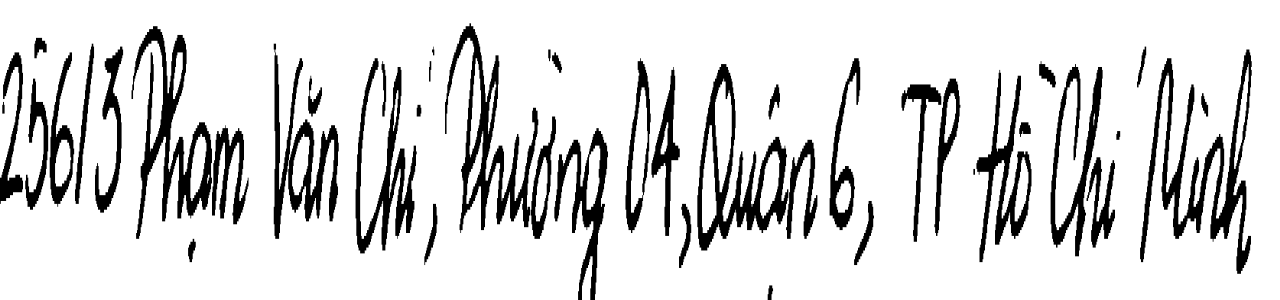 256/3 Phạm Văn Chí, Phường 04, Quận 6, TP Hồ Chí Minh